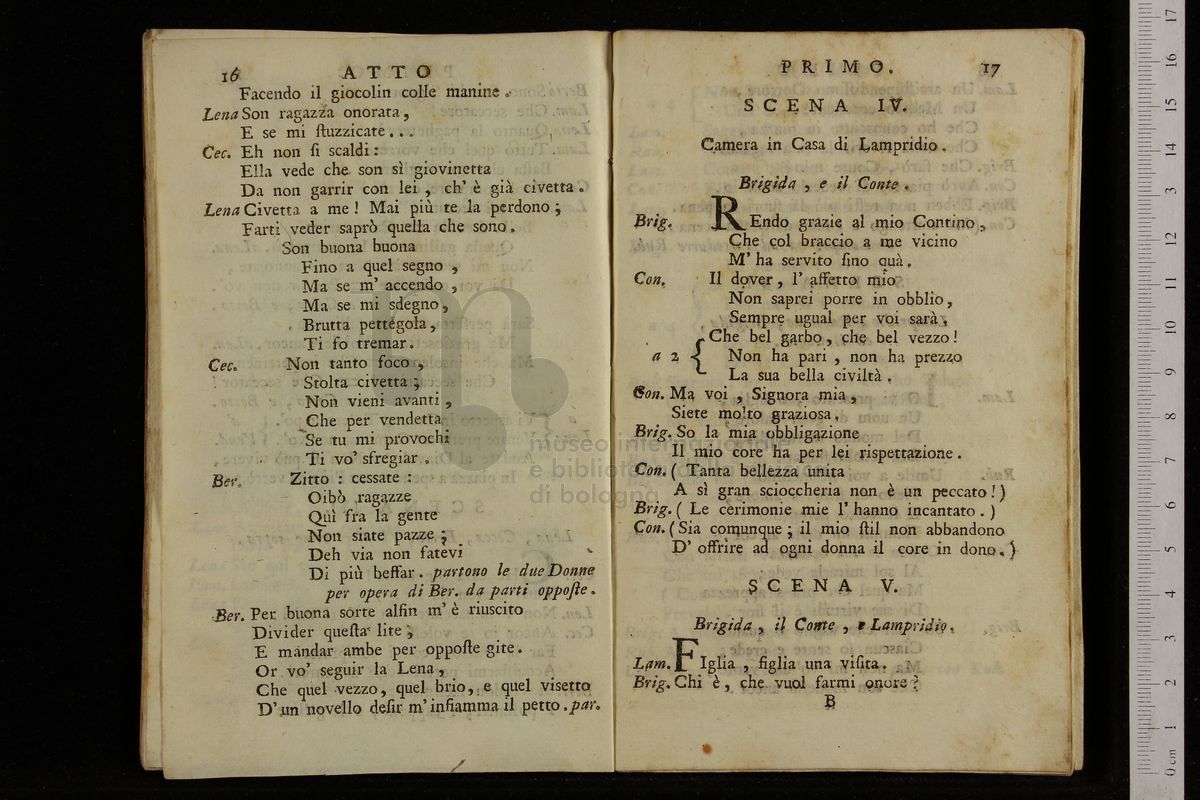 16 ATTO
Facendo il giocolin colle manine.
Lena Son ragazza onorata,
E se mi ſtuzzicate...
Cec. Eh non ſi scaldi:
Ella vede che son sì giovinetta
Da non garrir con lei, ch' è già civetta.
Lena Civetta a me! Mai più te la perdono;
Farti veder saprò quella che sono.
Son buona buona
Fino a quel segno,
Ma se m' accendo,
Ma se mi sdegno,
Brutta pettégola,
Ti fo tremar.
Cec. Non tanto foco,
Stolta civetta;
Non vieni avanti,
Che per vendetta
Se tu mi provochi
Ti vo' sfregiar.
Ber. Zitto: cessate:
Oibò ragazze
Quì fra la gente
Non siate pazze;
Deh via non fatevi
Di più beffar. partono le due Donne
per opera di Ber. da parti oppoſte.
Ber. Per buona sorte alfin m' è riuscito
Divider queſta lite,
E mandar ambe per oppoſte gite.
Or vo' seguir la Lena,
Che quel vezzo, quel brio, e quel visetto
D' un novello deſir m' infiamma il petto. par.
PRIMO. 17
SCENA IV.
Camera in Casa di Lampridio.
Brigida, e il Conte.
Brig. REndo grazie al mio Contino,
Che col braccio a me vicino
M' ha servito fino quà.
Con. Il dover, l' affetto mio
Non saprei porre in obblio,
Sempre ugual per voi sarà.
Che bel garbo, che bel vezzo!
a 2 { Non ha pari, non ha prezzo
La sua bella civiltà.
Con. Ma voi, Signora mia,
Siete molto graziosa.
Brig. So la mia obbligazione
Il mio core ha per lei rispettazione.
Con. (Tanta bellezza unita
A sì gran scioccheria non è un peccato!)
Brig. (Le cerimonie mie l' hanno incantato.)
Con. (Sia comunque; il mio ſtil non abbandono
D' offrire ad ogni donna il core in dono.)
SCENA V.
Brigida, il Conte, e Lampridio.
Lam. FIglia, figlia una viſita.
Brig. Chi è, che vuol farmi onore?
B
museo internazionale
e biblioteca
di bologna
0 cm 1 2 3 4 5 6 7 8 9 10 11 12 13 14 15 16 17